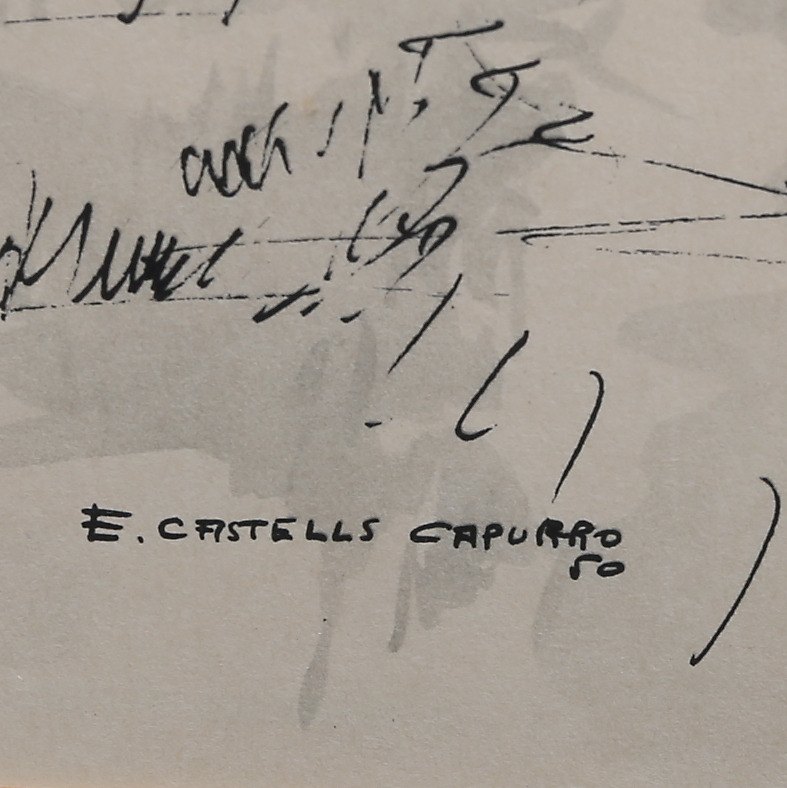 E. CASTELLS CAPURRO
50